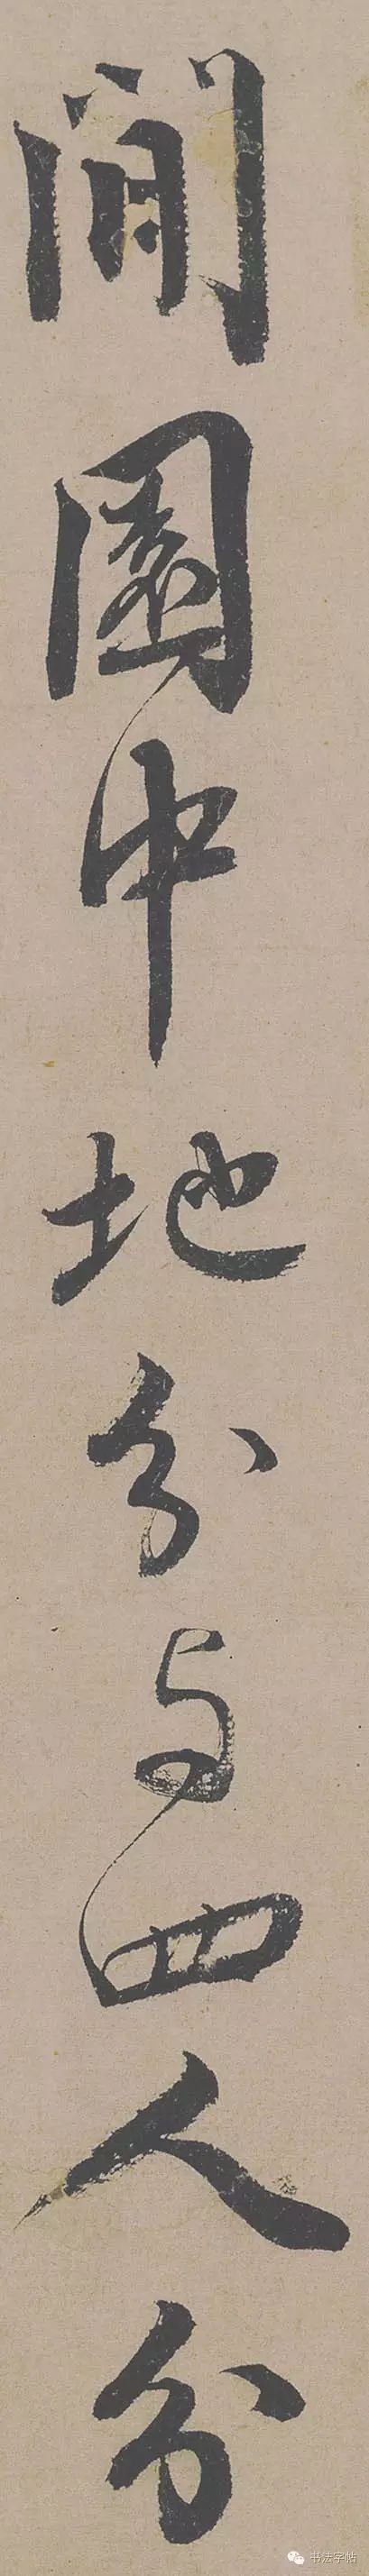 閒園中地分与四人分
书法字帖